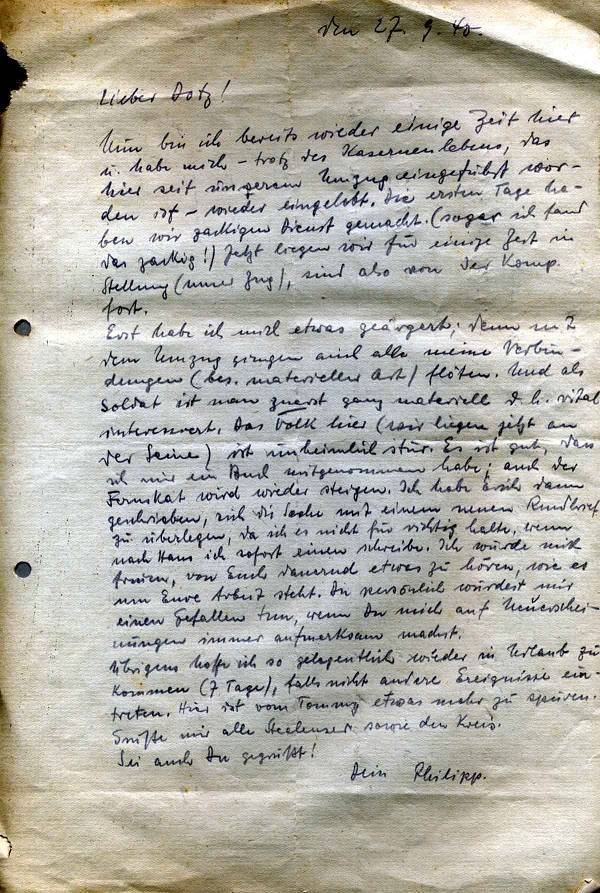 den 27. 9. 40.
Lieber Dotz!
Nun bin ich bereits wieder einige Zeit hier
u. habe mich – trotz des Kasernenlebens, das
hier seit unserem Umzug eingeführt wor-
den ist – wieder eingelebt. Die ersten Tage ha-
ben wir zackigen Dienst gemacht. (sogar ich fand
das zackig!) Jetzt liegen wir für einige Zeit in
Stellung (unser Zug), sind also von der Komp.
fort.
Erst habe ich mich etwas geärgert; denn mit
dem Umzug gingen auch alle meine Verbin-
dungen (bes. materieller Art) flöten. Und als
Soldat ist man zuerst ganz materiell d. h. vital
interessiert. Das Volk hier (wir liegen jetzt an
der Seine) ist unheimlich stur. Es ist gut, dass
ich mir ein Buch mitgenommen habe; auch der
Fernskat wird wieder steigen. Ich habe Erich dann
geschrieben, sich die Sache mit einem neuen Rundbrief
zu überlegen, da ich es nicht für richtig halte, wenn
nach Hans ich sofort einen schreibe. Ich würde mich
freuen, von Euch dauernd etwas zu hören, wie es
um Eure Arbeit steht. Du persönlich würdest mir
einen Gefallen tun, wenn Du mich auf Neuerschei-
nungen immer aufmerksam machst.
Übrigens hoffe ich so gelegentlich wieder in Urlaub zu
kommen (7 Tage), falls nicht andere Ereignisse ein-
treten. Hier ist vom Tommy etwas mehr zu spüren.
Grüße mir alle sowie den Kreis.
Sei auch Du gegrüßt!
Dein Philipp.